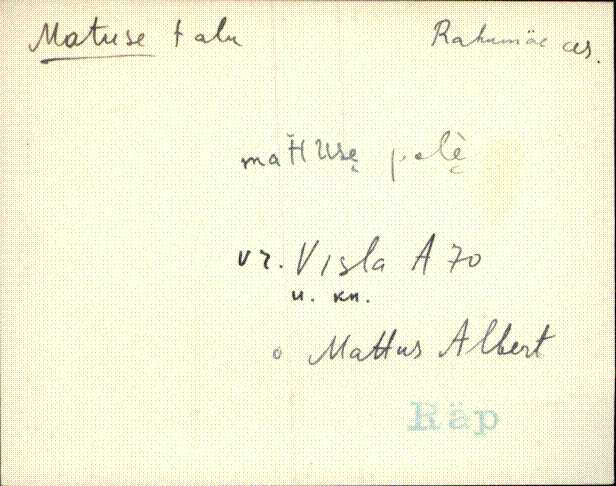 Matuse talu Rahumäe as.
mat̄t̄usę polè̜
vr. Visla A 70
u. kn.
o Mattus Albert
Räp